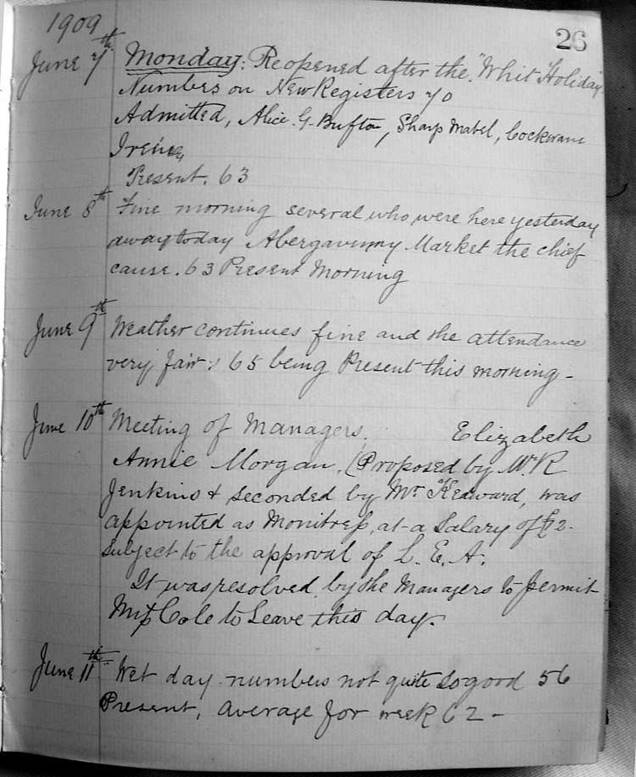 1909
26
June 7th Monday: Reopened after the "Whit" Holiday
Numbers on New Registers 70
Admitted, Alice. G. Bufton, Sharp Mabel, Cockerane
Irene,
Present. 63
June 8th Fine morning several who were here yesterday
away today Abergavenny Market the chief
cause. 63 Present Morning
June 9th Weather continues fine and the attendance
very fair: 65 being Present this morning -
June 10th Meeting of Managers. Elizabeth
Annie Morgan, (Proposed by W. R
Jenkins & seconded by Mr Keaward, was
appointed as Monitress, at a Salary of £2-
subject to the approval of L. E. A.
It was resolved by the Managers to permit
Miss Cole to Leave this day.
June 11th Wet day numbers not quite so good 56
Present, average for week 62 -